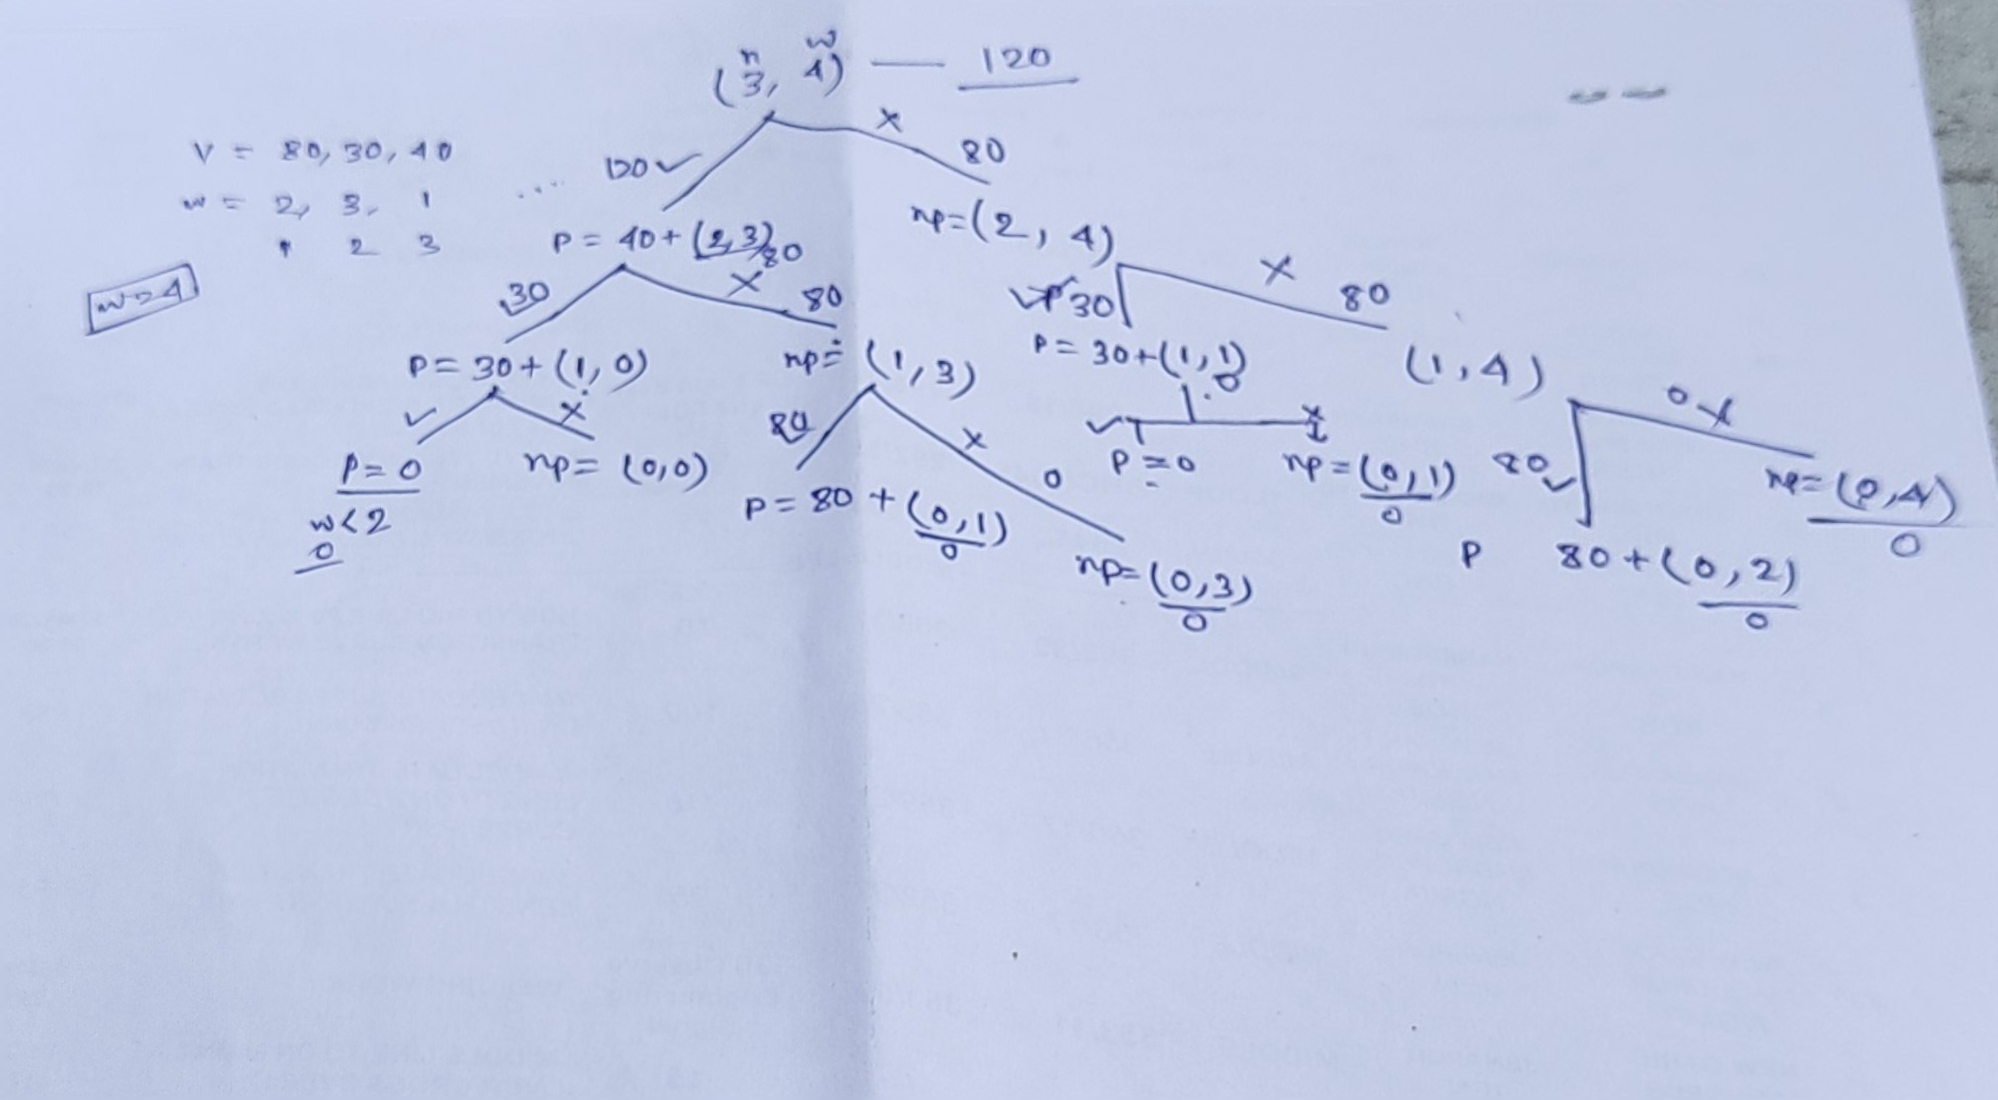 n w
(3, 4) — 120
V = 80, 30, 40
w = 2, 3, 1
1 2 3
w=4
120 ✓ × 80
p = 40 + (2,3) 80
np=(2, 4)
30 × 80
✓ p 30 × 80
p = 30 + (1, 0)
np = (1, 3)
p = 30+(1,1) 0
(1, 4)
✓ ×
80 × 0
✓ ×
80 ✓ 0 ×
p = 0
w<2
0
np = (0,0)
p = 80 + (0,1)
0
np=(0,3)
0
p = 0
np=(0,1)
0
np=(0,4)
0
p 80 + (0,2)
0